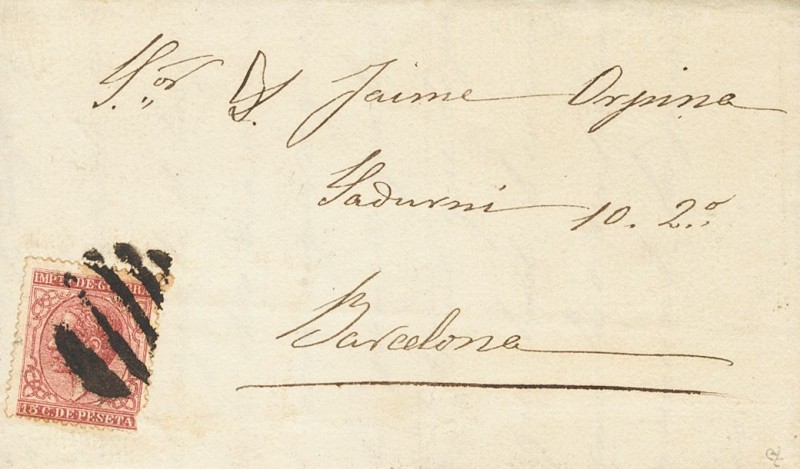 S.or D. Jaime Orpina
Sadurni 10. 2.o
Barcelona
IMPTO DE GUERRA
15 C. DE PESETA